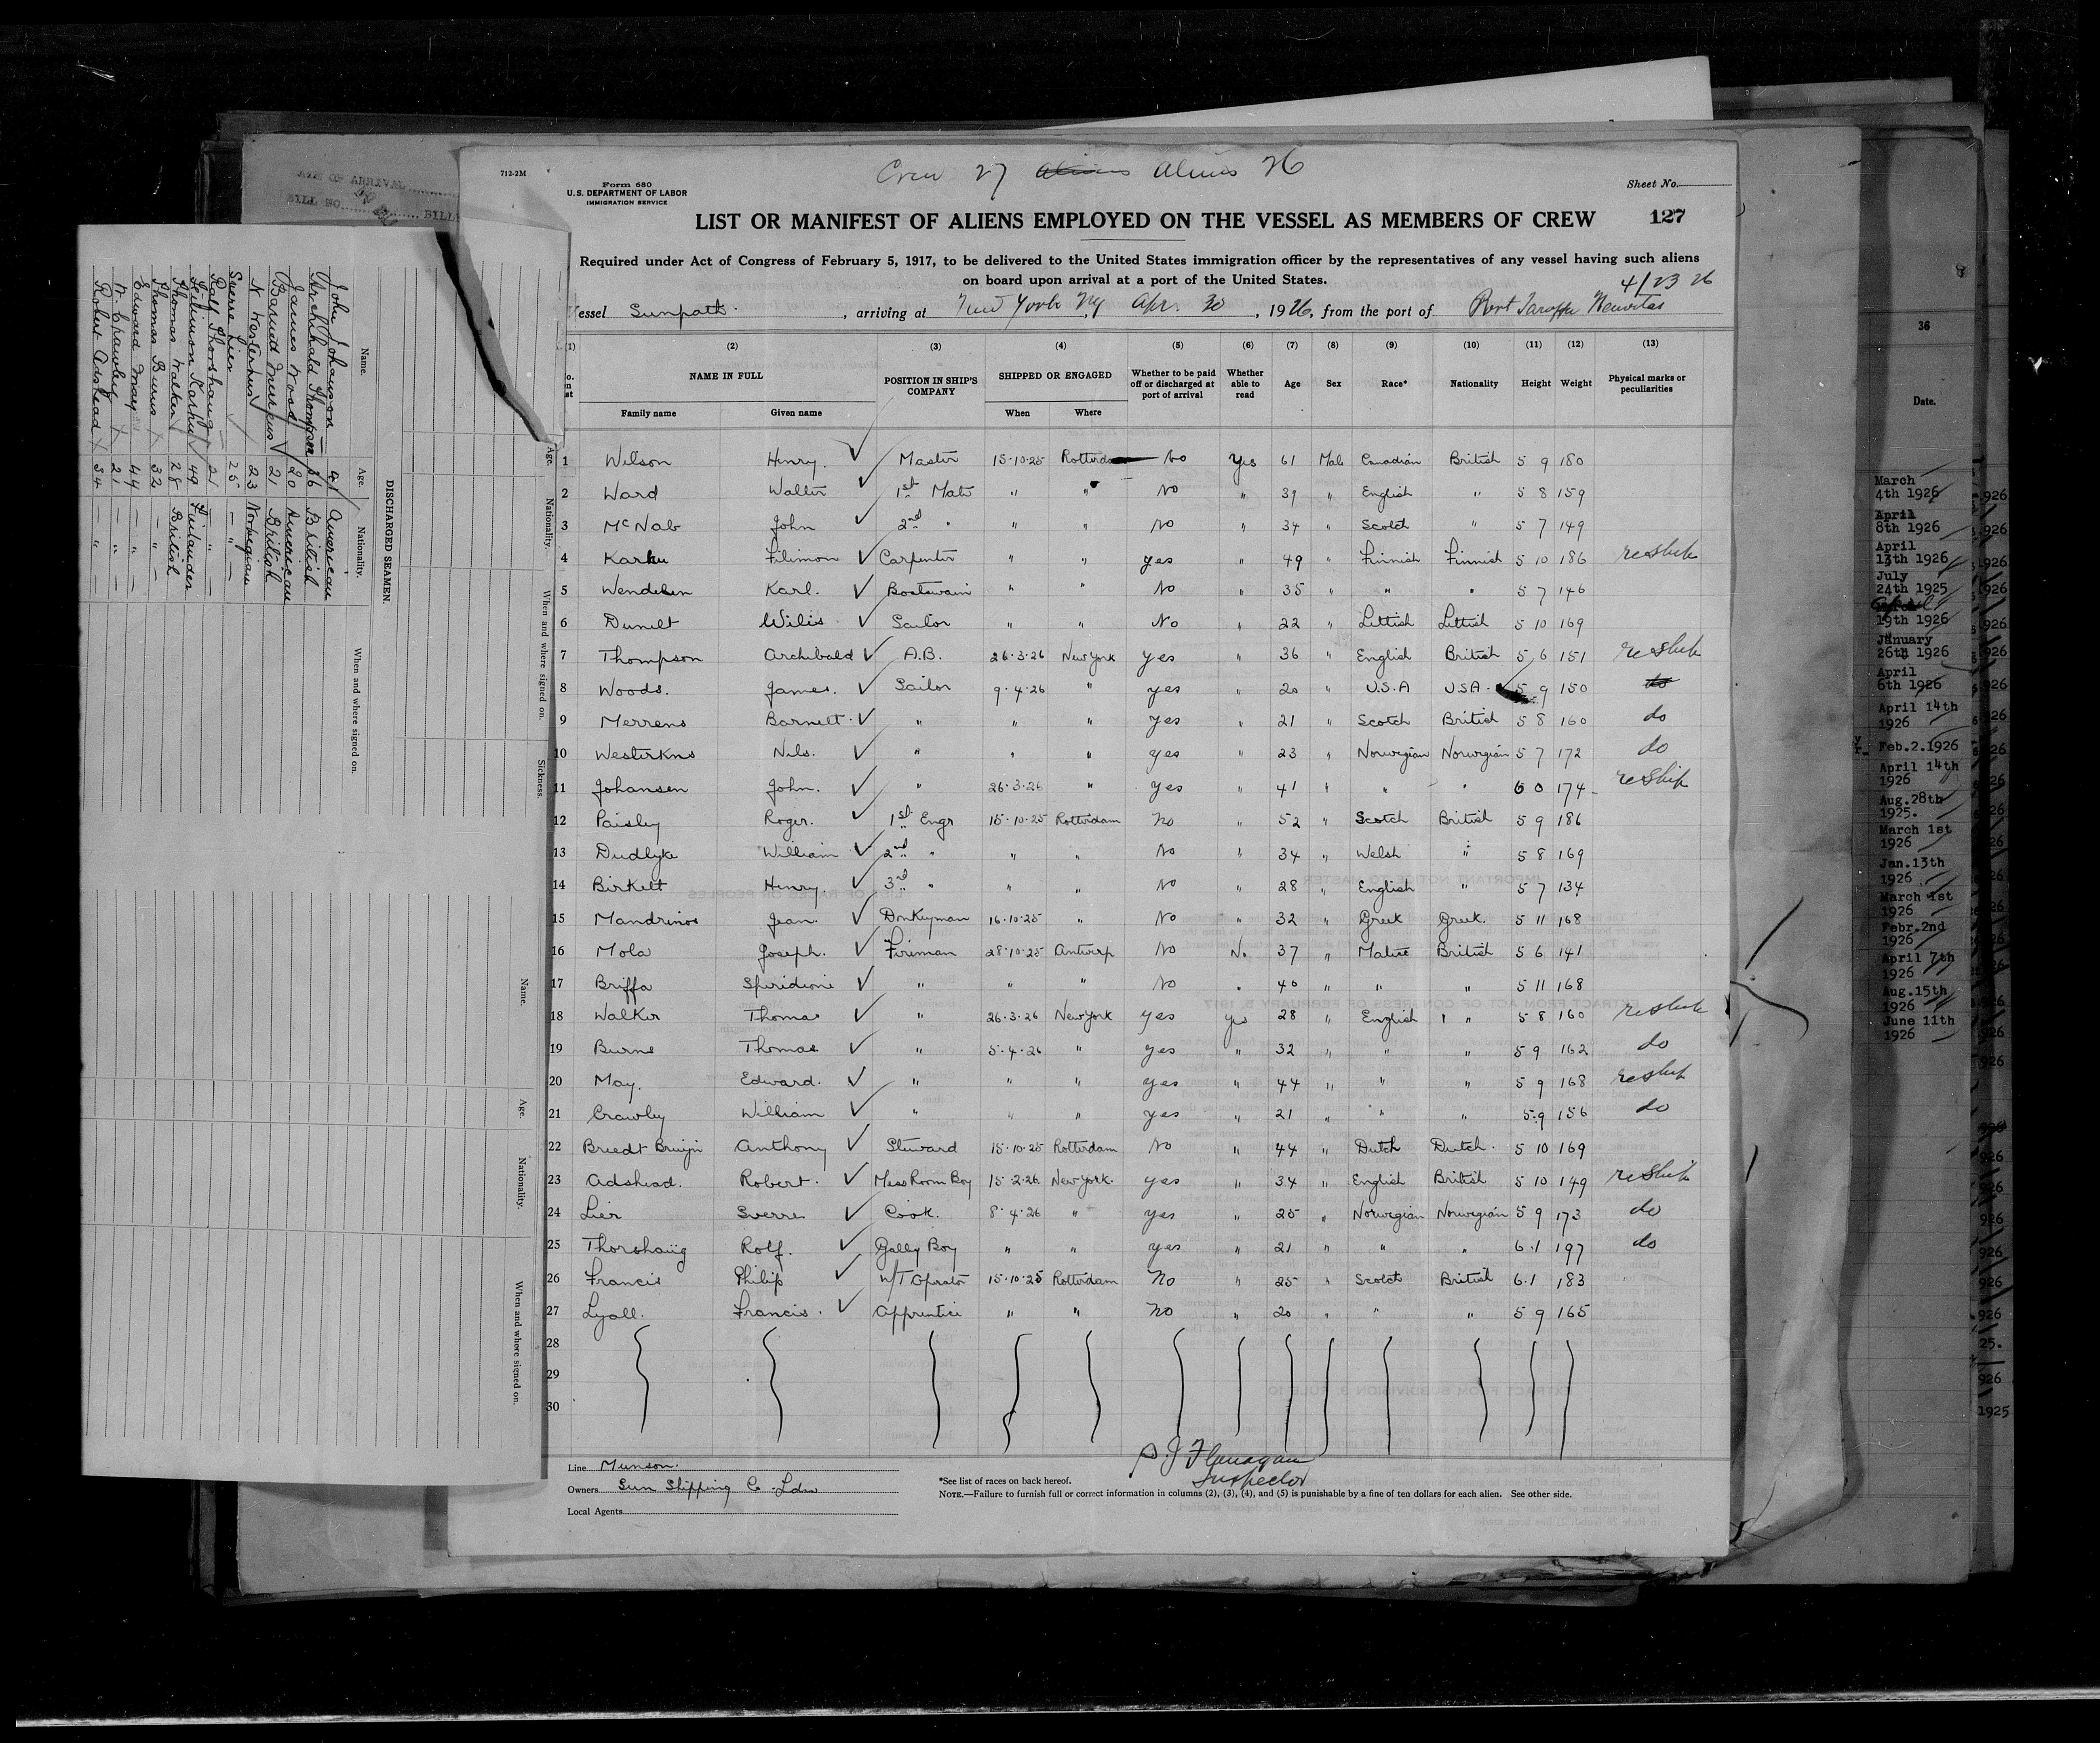 Crew 27 Aliens Aliens 26
712-2M
Form 680
U.S. DEPARTMENT OF LABOR
IMMIGRATION SERVICE
Sheet No.
LIST OR MANIFEST OF ALIENS EMPLOYED ON THE VESSEL AS MEMBERS OF CREW 127
Required under Act of Congress of February 5, 1917, to be delivered to the United States immigration officer by the representatives of any vessel having such aliens
on board upon arrival at a port of the United States.
4/23 26
essel Sunpath, arriving at New York NY Apr. 30, 1926, from the port of Port Tarafa Nuevitas
(1) (2) (3) (4) (5) (6) (7) (8) (9) (10) (11) (12) (13)
NAME IN FULL POSITION IN SHIP'S COMPANY SHIPPED OR ENGAGED Whether to be paid off or discharged at port of arrival Whether able to read Age Sex Race* Nationality Height Weight Physical marks or peculiarities
Family name Given name When Where
1 Wilson Henry. Master 15-10-25 Rotterdam No Yes 61 Male Canadian British 5 9 180
2 Ward Walter 1st Mate " " No " 39 " English " 5 8 159
3 McNab John 2nd " " " No " 34 " Scotch " 5 7 149
4 Karhu Filimon Carpenter " " yes " 49 " Finnish Finnish 5 10 186 reship
5 Karl. Boatswain " " No " 35 " " " 5 7 146
6 Wilis Sailor " " No " 22 " Lettish Lettish 5 10 169
7 Thompson Archibald A.B. 26-3-26 New York yes " 36 " English British 5 6 151 reship
8 Woods. James. Sailor 9-4-26 " yes " 20 " U.S.A USA. 5 9 150 do
9 Merrens Barnett. " " " yes " 21 " Scotch British 5 8 160 do
10 Nils. " " " yes " 23 " Norwegian Norwegian 5 7 172 do
11 Johansen John. " 26-3-26 " yes " 41 " " " 6 0 174 reship
12 Paisley Roger. 1st Engr 15-10-25 Rotterdam No " 52 " Scotch British 5 9 186
13 Dudlyke William 2nd " " " No " 34 " Welsh " 5 8 169
14 Birkett Henry. 3rd " " " No " 28 " English " 5 7 134
15 Mandrinos Jean. Donkeyman 16-10-25 " No " 32 " Greek Greek. 5 11 168
16 Mola Joseph. Fireman 28-10-25 Antwerp No No 37 " British 5 6 141
17 Briffa Spiridione " " " No " 40 " " " 5 11 168
18 Walker Thomas " 26-3-26 New York yes yes 28 " English " 5 8 160 reship
19 Burns Thomas " 5-4-26 " yes " 32 " " " 5 9 162 do
20 May. Edward. " " " yes " 44 " " " 5 9 168 reship
21 Crawley William " " " yes " 21 " " " 5.9 156 do
22 Breedt Bruijn Anthony Steward 15-10-25 Rotterdam No " 44 " Dutch Dutch. 5 10 169
23 Adshead. Robert. Mess Room Boy 15-2-26 New York. yes " 34 " English British 5 10 149 reship
24 Lier Sverre Cook. 8-4-26 " yes " 25 " Norwegian Norwegian 5 9 173 do
25 Thorshaug Rolf. Gally Boy " " yes " 21 " " " 6.1 197 do
26 Francis Philip W/T Operator 15-10-25 Rotterdam No " 25 " Scotch British 6.1 183
27 Lyall. Francis. Apprentice " " No " 20 " " " 5 9 165
28
29
30
Line Munson.
Owners Sun Shipping Co Ldn
Local Agents
*See list of races on back hereof.
Flanagan
Inspector
NOTE.—Failure to furnish full or correct information in columns (2), (3), (4), and (5) is punishable by a fine of ten dollars for each alien. See other side.
DISCHARGED SEAMEN.
Name. Age. Nationality. When and where signed on.
John Johansson 41 American
Archibald Thompson 36 British
James Wood 20 American
Barnett Merrens 21 British
N Westerhus 23 Norwegian
Sverre Lier 25 — " —
Ralf Thorshaug 21 — " —
Filimon Karhu 49 Finlander
Thomas Walker 28 British
Thomas Burns 32 — " —
Edward May 44 — " —
W. Crawley 21 — " —
Robert Adshead 34 — " —
Age. Nationality. When and where signed on. Sickness.
Name. Age. Nationality. When and where signed on.
DATE OF ARRIVAL
BILL NO. BILL
36
Date.
March
4th 1926
April
8th 1926
April
13th 1926
July
24th 1925
April
19th 1926
January
26th 1926
April
6th 1926
April 14th
1926
Feb.2.1926
April 14th
1926
Aug.28th
1925.
March 1st
1926
Jan.13th
1926
March 1st
1926
Febr.2nd
1926
April 7th
1926
Aug.15th
1926
June 11th
1926